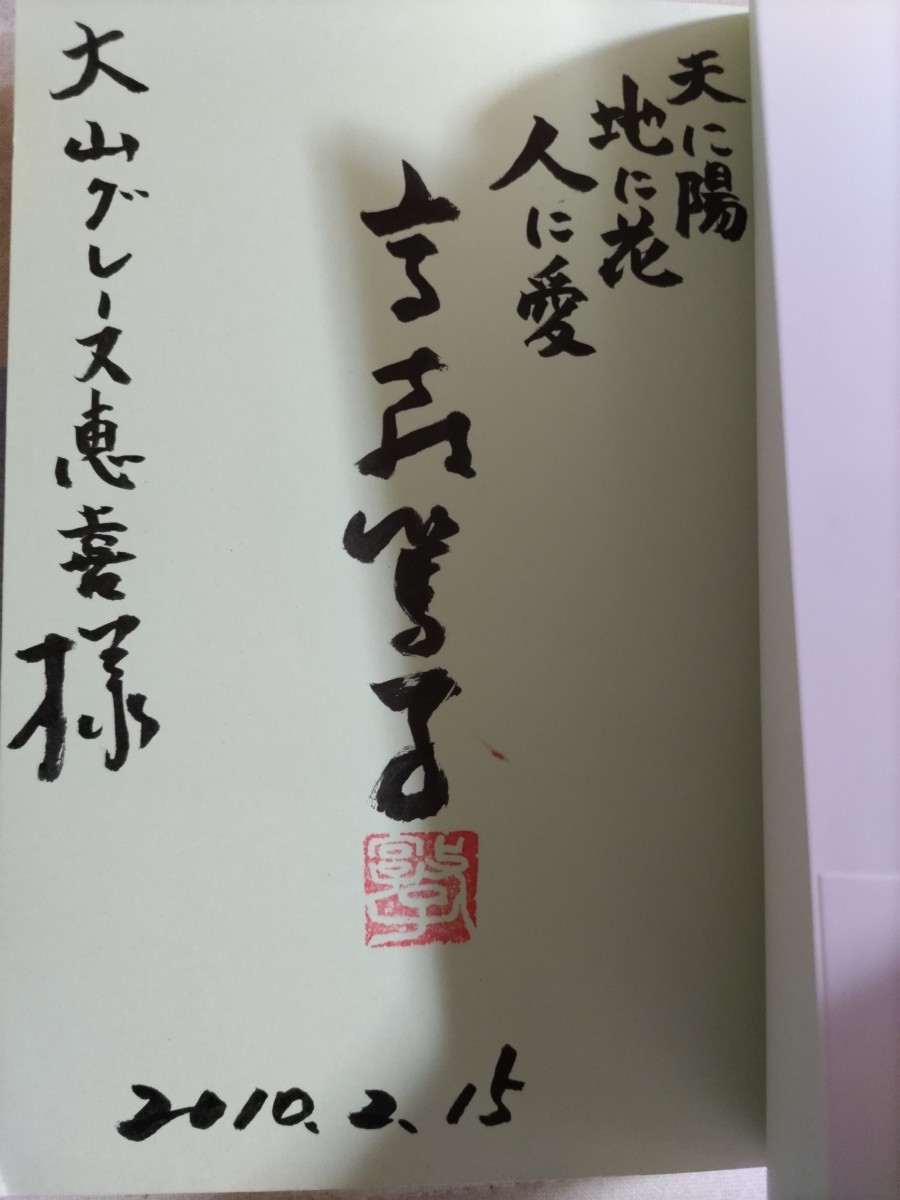 天に陽
地に花
人に愛
大山グレース恵喜様
2010.2.15